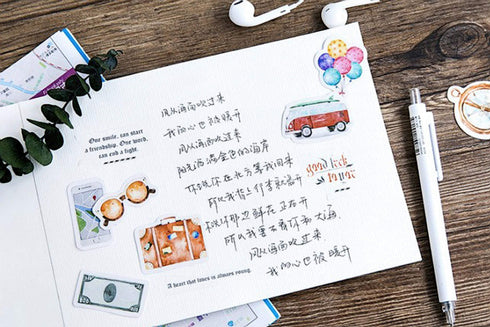 One smile, can start
a friendship. One word,
can end a fight.
风从海面吹过来
我的心也被暖开
风从海面吹过来
阳光洒满金色的海岸
你说你在
等我回来
所以我背上行李就离开
你那边鲜花正在开
所以我要去看你和大海.
风从海面吹过来
我的心也被暖开
good luck
to you
A heart that loves is always young.